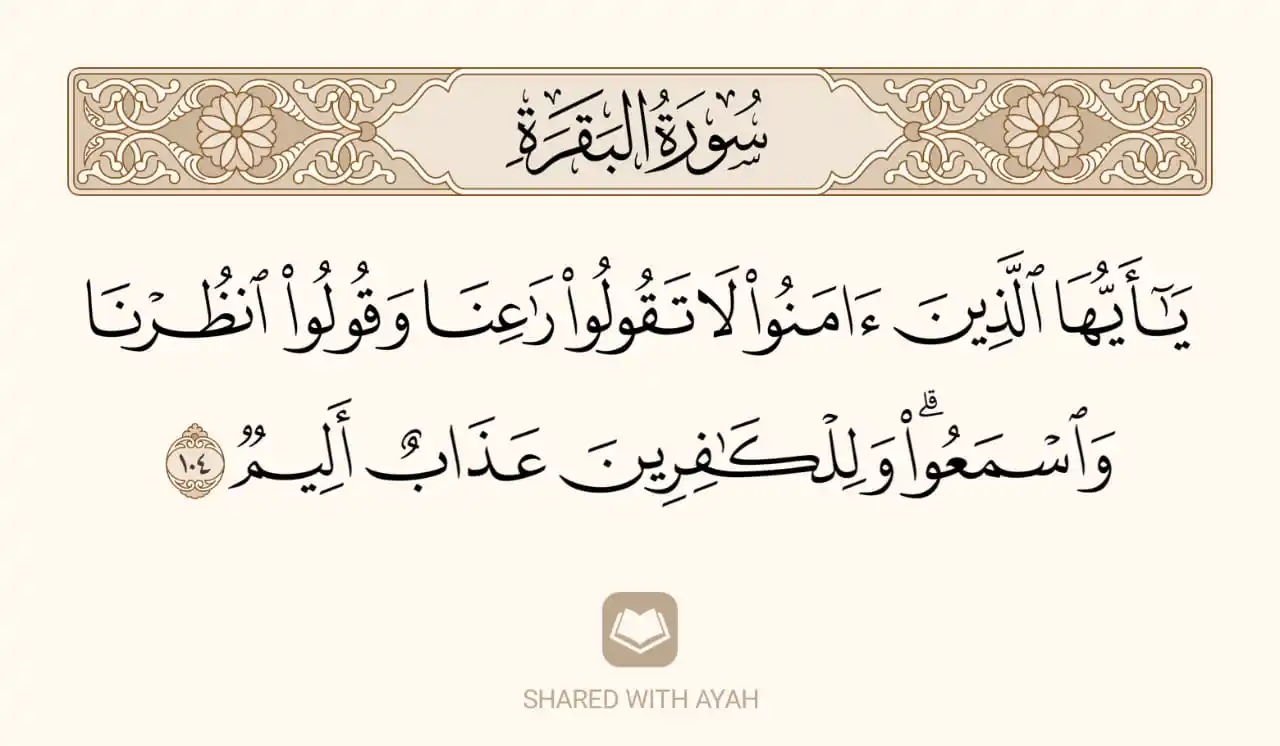 سُورَةُ البَقَرَةِ
يَٰٓأَيُّهَا ٱلَّذِينَ ءَامَنُوا۟ لَا تَقُولُوا۟ رَٰعِنَا وَقُولُوا۟ ٱنظُرْنَا
وَٱسْمَعُوا۟ ۗ وَلِلْكَٰفِرِينَ عَذَابٌ أَلِيمٌ ١٠٤
SHARED WITH AYAH